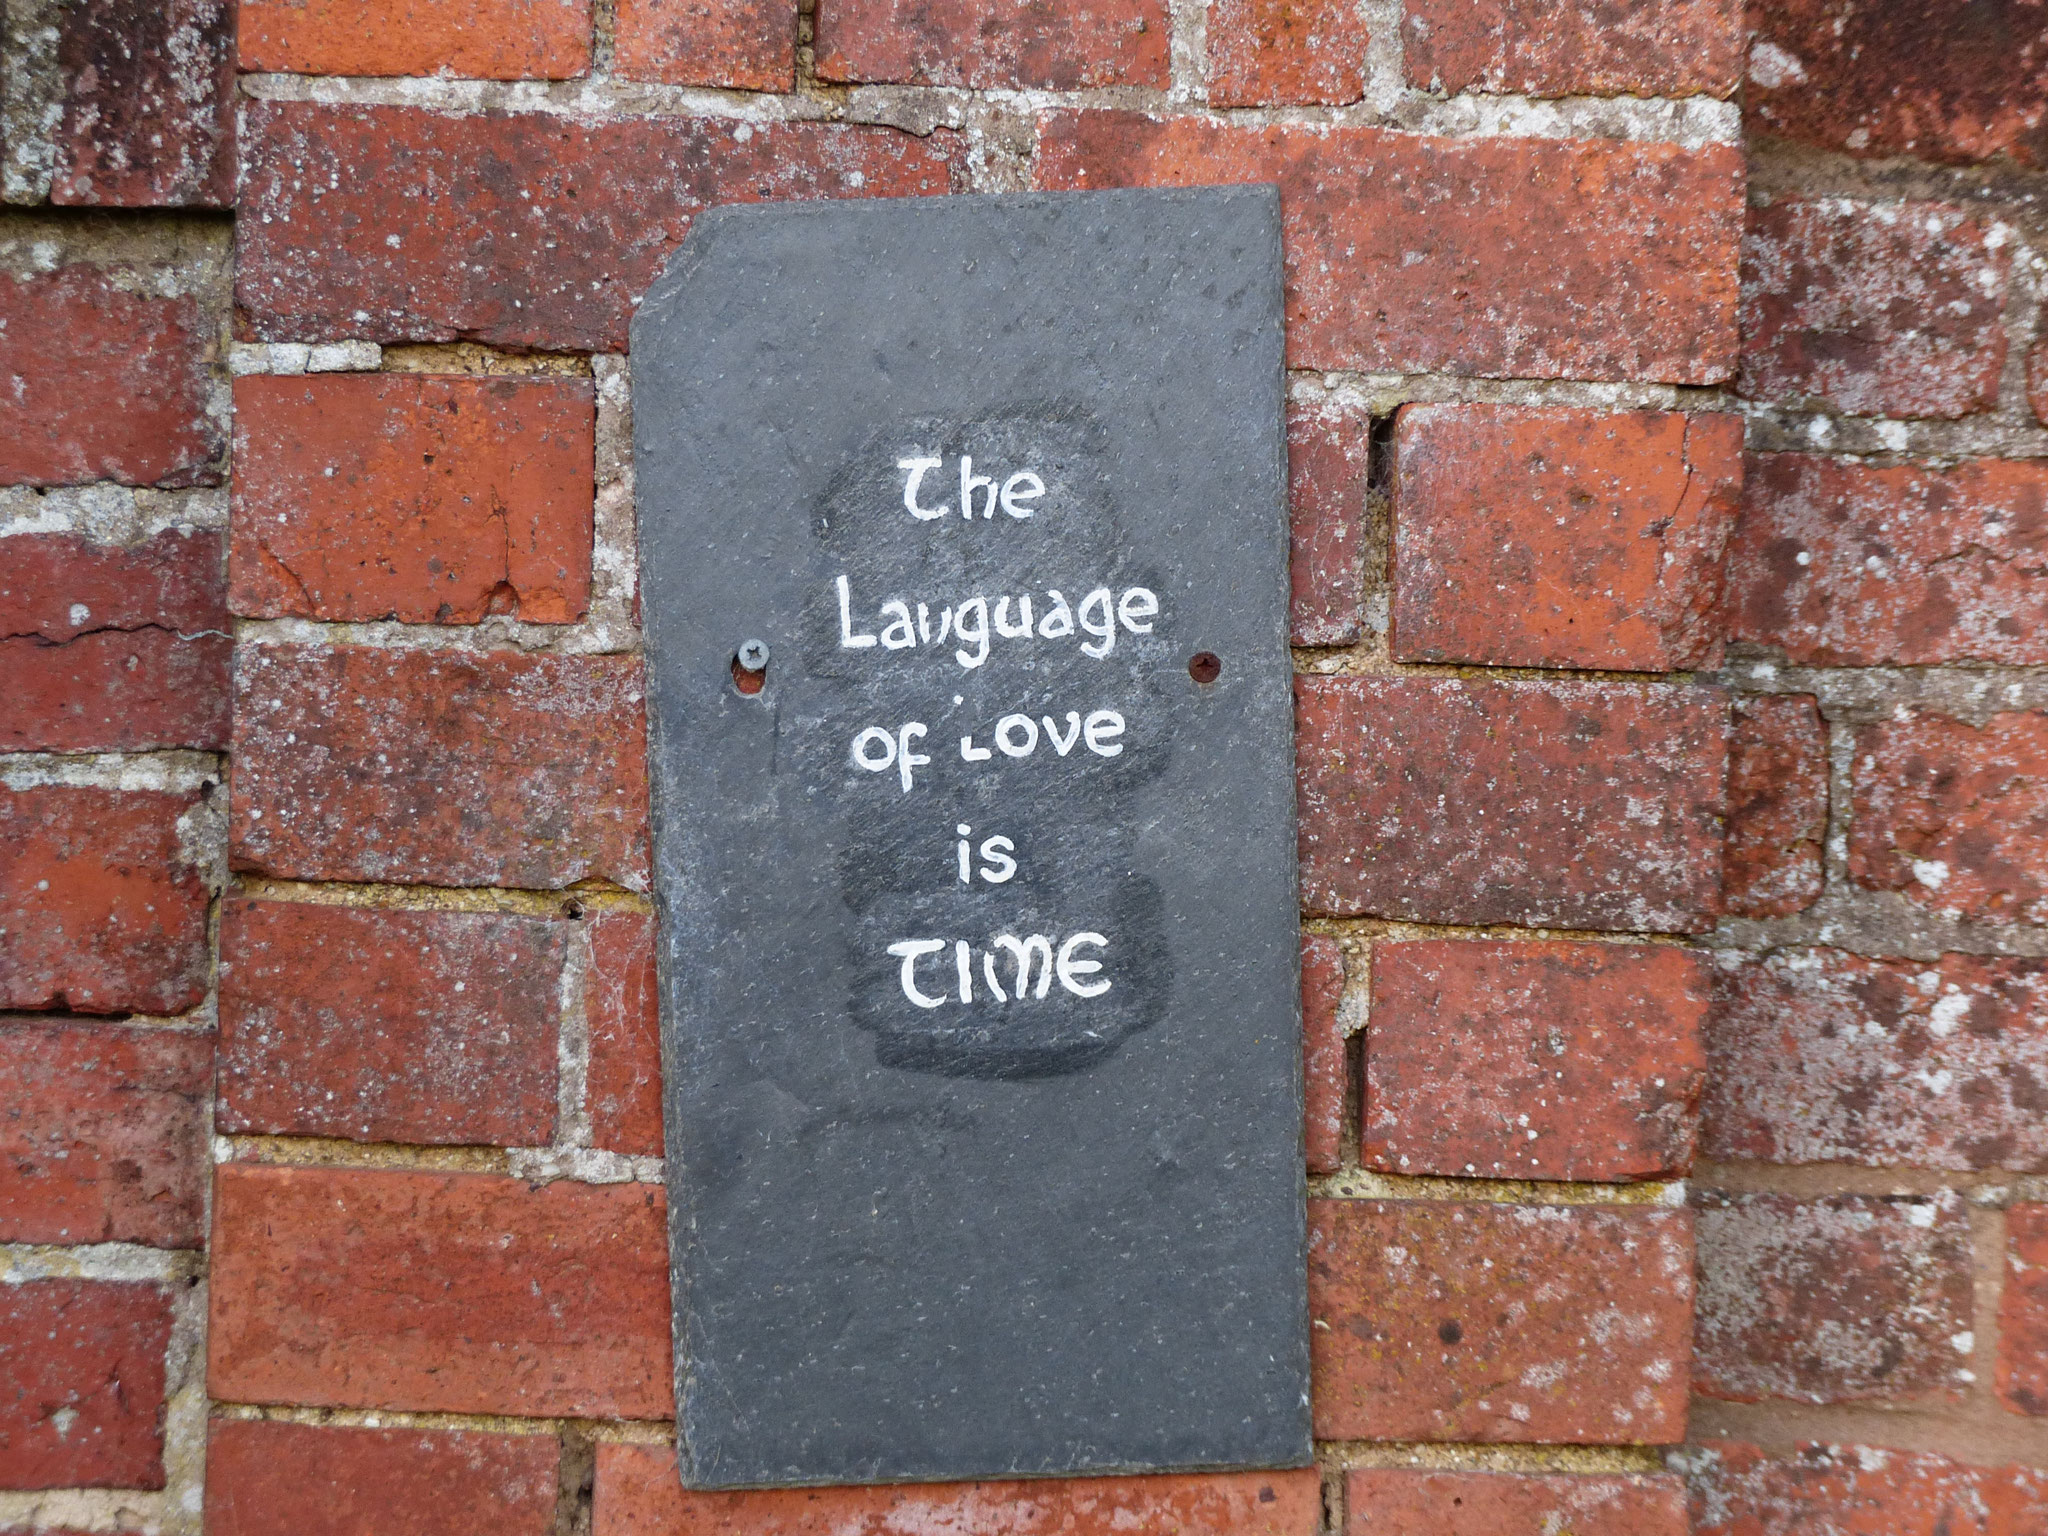 The
Language
of Love
is
TIME